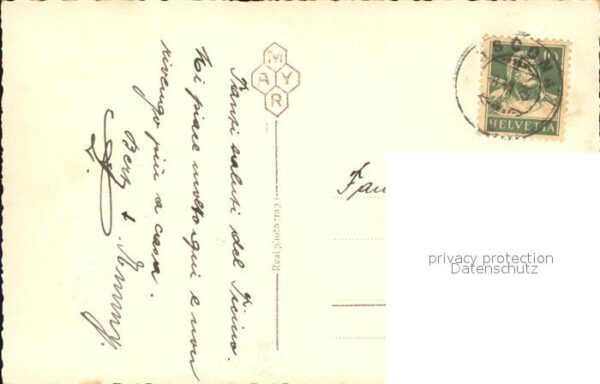 Tanti saluti del Ticino.
Mi piace molto qui e non
rivengo più a casa.
Bert &
MAYR
HELVETIA
Fam
privacy protection
Datenschutz